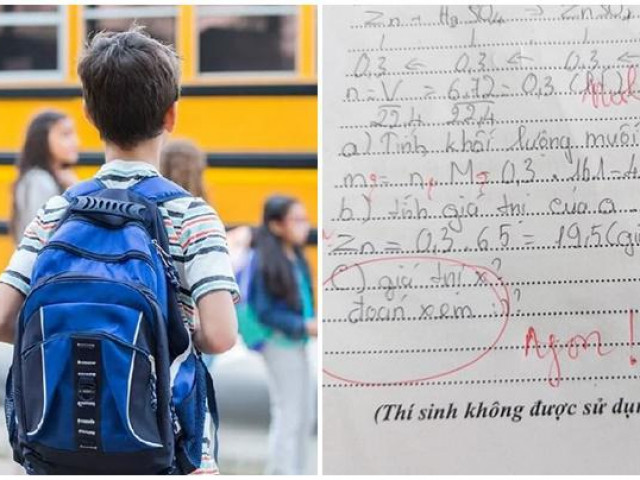 Zn + H2SO4 → ZnSO4
1 1 1
0,3 ← 0,3 ← 0,3 ←
n = V/22,4 = 6,72/22,4 = 0,3 (
a) Tính khối lượng muối
m = n . M = 0,3 . 161 = 4
b) tính giá trị của a
Zn = 0,3 . 65 = 19,5 (g
c) giá trị x?
đoán xem :??
Ngon!
(Thí sinh không được sử dụ